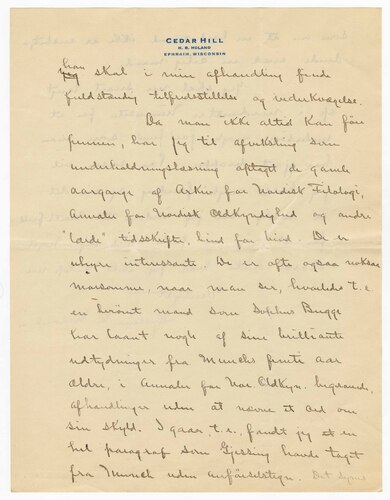 CEDAR HILL
H. R. HOLAND
EPHRAIM, WISCONSIN
han skal i min afhandling finde
fuldstændig tilfredsstillelse og vederkvægelse.
Da man ikke altid kan före
pennen, har jeg til afveksling som
underholdningslæsning de gamle
aargange af Arkiv for Nordisk Filologi,
Annaler for Nordisk Oldkyndighed og andre
"lærde" tidsskrifter, bind for bind. De er
uhyre interessante. De er ofte ogsaa noksaa
morsomme, naar man ser, hvorledes t. e.
en berömt mand som Sophus Bugge
har laant nogle af sine brilliante
udtydninger fra Munchs femti aar
ældre, i Annaler for Nor. Oldkyn. begravede,
afhandlinger uden at nævne et ord om
sin skyld. I gaar t. e. fandt jeg et en
hel paragraf som Gjessing havde taget
fra Munch uden anförselstegn. Det synes